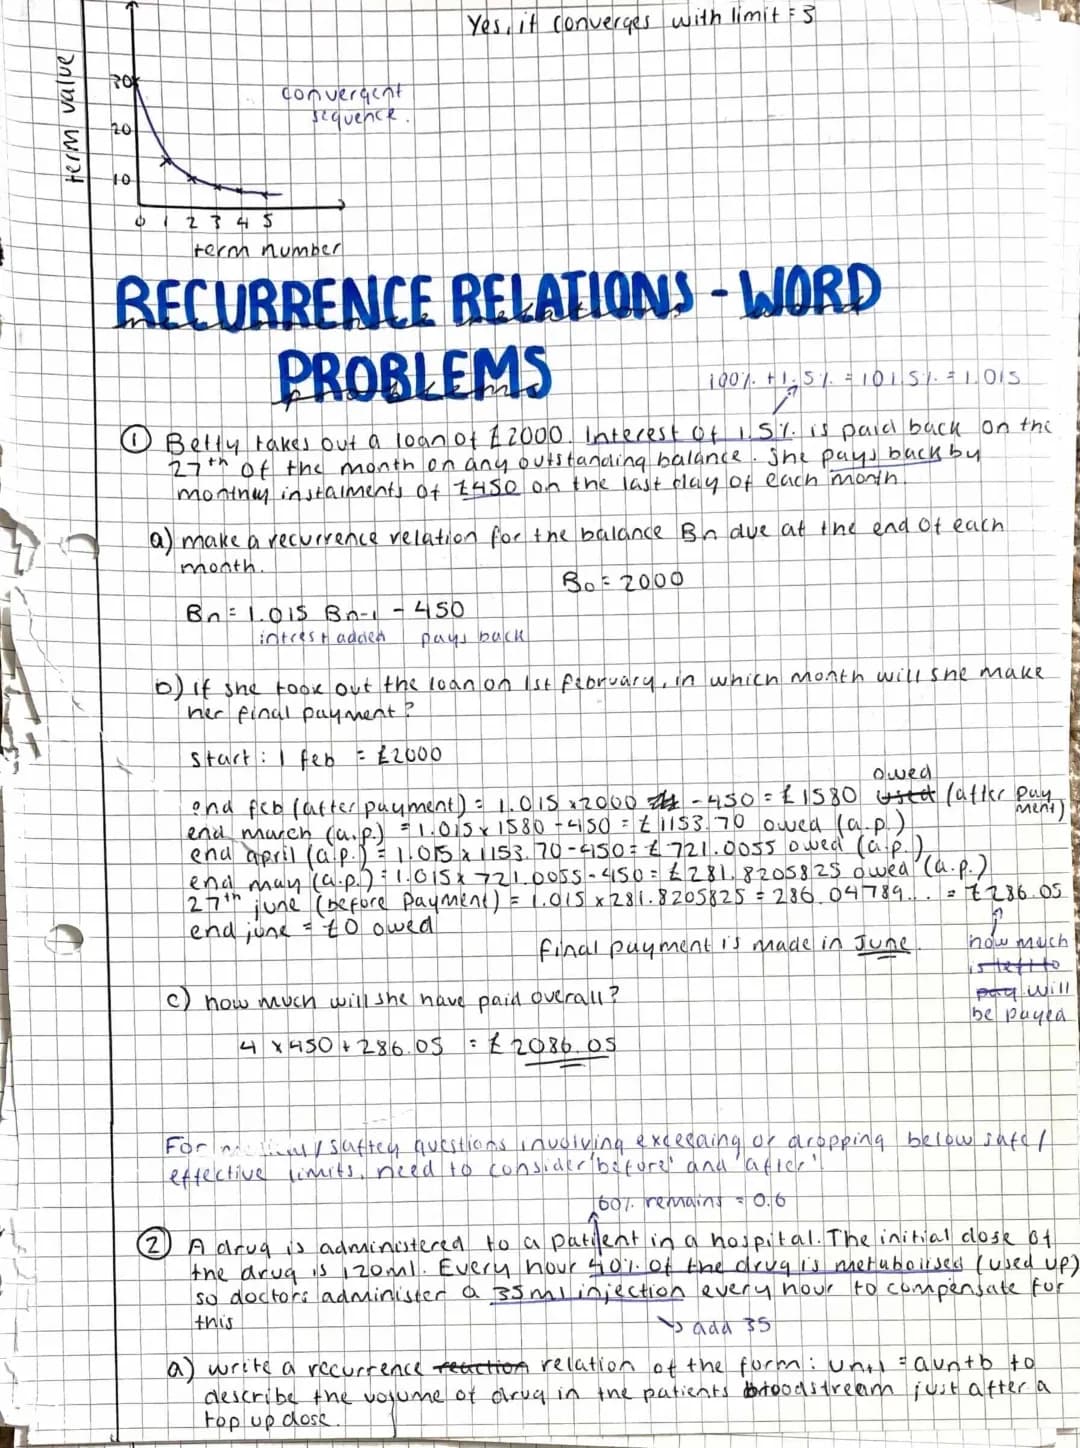 Yes, it converges with limit = 3
term value
30
20
10
convergent
sequence.
0 1 2 3 4 5
term number
RECURRENCE RELATIONS - WORD
PROBLEMS
100% + 1.5% = 101.5% = 1.015
① Betty takes out a loan of £2000. Interest of 1.5% is paid back on the
27th of the month on any outstanding balance. She pays back by
montnly instalments of £450 on the last day of each month.
a) make a recurrence relation for the balance Bn due at the end of each
month.
B0 = 2000
Bn = 1.015 Bn-1 - 450
intrest added pays back
b) If she took out the loan on 1st february, in which month will she make
her final payment?
start: 1 feb = £2000
owed
end feb (after payment) = 1.015 x 2000 - 450 = £1580 used (after pay
ment)
end march (a.p.) = 1.015 x 1580 - 450 = £1153.70 owed (a.p.)
end april (a.p.) = 1.015 x 1153.70 - 450 = £721.0055 owed (a.p.)
end may (a.p.) = 1.015 x 721.0055 - 450 = £281.8205825 owed (a.p.)
27th june (before payment) = 1.015 x 281.8205825 = 286.04789... = £286.05
end june = £0 owed
final payment is made in June.
how much
is left to
pay will
be payed
c) how much will she have paid overall?
4 x 450 + 286.05 = £2086.05
For / saftey questions involving exceeding or dropping below safe /
effective limits, need to consider 'before' and 'after'
60% remains = 0.6
② A drug is administered to a patient in a hospital. The initial dose of
the drug is 120ml. Every hour 40% of the drug is metabolised (used up)
so doctors administer a 35ml injection every hour to compensate for
this
add 35
a) write a recurrence reaction relation of the form: un+1 = aun+b to
describe the volume of drug in the patients bloodstream just after a
top up dose.